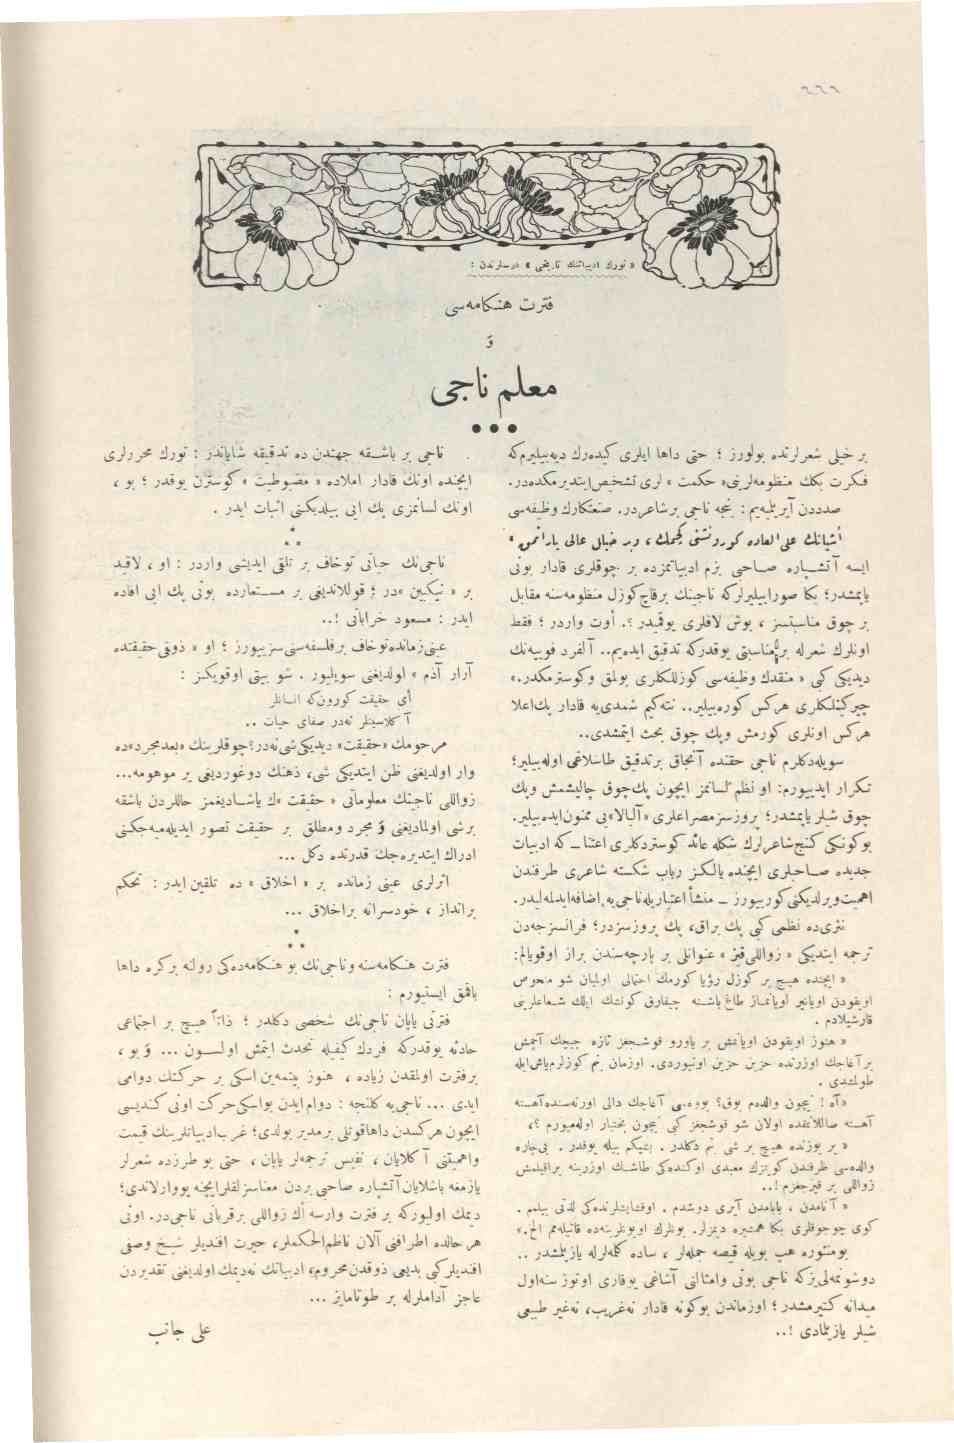 « تورك ادبياتنك تاريخى » درسلرندن :
فترت هنكامه‌سى
و
معلم ناجى
بر خيلى شعرلرنده بولورز ؛ حتى داها ايلرى كيده‌رك ديه‌بيليرم‌كه
فكرت بكك منظومه‌لرينى « حكمت » لرى تشخيص ايتديرمكده‌در.
صدددن آيريليه‌يم : نجه ناجى برشاعردر. صنعتكارك وظيفه‌سى
ايسه آتشپاره صاحبى بزم ادبياتمزده بر چوقلرى قادار بونى
ياپمشدر؛ بكا صورابيليرلركه ناجينك برقاچ كوزل منظومه‌سنه مقابل
بر چوق مناسبتسز ، بوش لافلرى يوقميدر ؟. أوت واردر ؛ فقط
اونلرك شعرله برمناسبتى يوقدركه تدقيق ايده‌يم.. آلفرد فوييه‌نك
ديديكى كبى « منقدك وظيفه‌سى كوزللكلرى بولمق وكوسترمكدر.»
چيركينلكلرى هركس كوره‌بيلير.. نته‌كيم شمدى‌يه قادار پك‌اعلا
هركس اونلرى كورمش وپك چوق بحث ايتمشدى..
سويله‌دكلرم ناجى حقنده آنجاق برتدقيق طاسلاغى اوله‌بيلير؛
تكرار ايديبورم: او نظم لسانمز ايچون پك‌چوق چاليشمش وپك
چوق شيلر ياپمشدر؛ پروزسز مصراعلرى «آلبالا»بى ممنون ايده‌بيلير.
بوكونكى كنج‌شاعرلرك شكله عائد كوستردكلرى اعتنا ــ كه ادبيات
جديده صاحلرى ايچنده يالكز رباب شكسته شاعرى طرفندن
اهميت ويرلديكنى كوريبورز ــ منشأ اعتباريله ناجى‌يه اضافه ايدلمليدر.
نثرى‌ده نظمى كبى پك براق، پك پروزسزدر؛ فرانسزجه‌دن
ترجمه ايتديكى « زواللى قيز » عنوانلى بر پارچه‌سندن براز اوقويالم:
« ايچنده هيچ بر كوزل رؤيا كورمك احتمالى اوليان شو منحوس
اويقودن اويانير اويانماز طاغ باشنه چيقارق كونشك ايلك شعاعلرينى
قارشيلادم .
« هنوز اويقودن اويانمش بر ياورو قوشجغز تازه چيچك آچمش
بر آغاجك اوزرنده حزين حزين اوتيوردى. اوزمان بنم كوزلرم ياش‌ايله
طولمشدى .
آهسته صاللانمقده اولان شو قوشجغز كبى نيچون بختيار اوله‌ميورم ؟،
« بر يوزنده هيچ بر شى بنم دكلدر . بشيكم بيله يوقدر . بى‌چاره
والده‌سى طرفندن كويمزك معبدى اوكنده‌كى طاشك اوزرينه براقيلمش
زواللى بر قيزجغزم !..
« آنامدن ، بابامدن آيرى دوشدم . اوقشايشلرنده‌كى لذتى بيلمم .
كوى چوجوقلرى بكا همشيره ديمزلر. بونلرك اويونلرينه‌ده قاتيله‌مم الخ.»
بومنثوره هپ بويله قيصه جمله‌لر ، ساده كلمه‌لرله يازيلمشدر ..
دوشونمه‌لى‌يزكه ناجى بونى وامثالنى آشاغى يوقارى اوتوز سنه‌اول
ميدانه كتيرمشدر ؛ اوزماندن بوكونه قادار نه‌غريب، نه‌غير طبيعى
شيلر يازيلمادى !..
ناجى بر باشقه جهتدن ده تدقيقه شاياندر : تورك محررلرى
ايچنده اونك قادار املاده « مضبوطيت » كوسترن يوقدر ؛ بو ،
اونك لسانمزى پك ايى بيلديكنى اثبات ايدر .
ناجى‌نك حياتى توخاف بر تلقى ايديشى واردر : او ، لاقيد
بر « نيكبين »در ؛ قوللانديغى بر مستعارده بونى پك ايى افاده
ايدر : مسعود خراباتى !..
عينى‌زمانده توخاف برفلسفه‌سنى سزييورز ؛ او « ذوقى حقيقتده
آرار آدم » اولديغنى سويليور . شو بيتى اوقويكز :
أى حقيقت كورون‌كه انسانلر
آكلاسينلر نه‌در صفاى حيات ..
مرحومك «حقيقت» ديديكى شى نه‌در؟ چوقلرينك «بعدمجرد»ده
وار اولديغنى ظن ايتديكى شى، ذهنك دوغورديغى بر موهومه...
زواللى ناجينك معلوماتى « حقيقت »ك ياشاديغمز حاللردن باشقه
برشى اولماديغنى و مجرد ومطلق بر حقيقت تصور ايديله‌ميه‌جكنى
ادراك ايتديره‌جك قدرتده دكل ...
اثرلرى عينى زمانده بر « اخلاق » ده تلقين ايدر : تحكم
برانداز ، خودسرانه براخلاق ...
فترت هنكامه‌سنه وناجى‌نك بو هنكامه‌ده‌كى رولنه بركره داها
باقمق ايستيورم :
فترتى ياپان ناجى‌نك شخصى دكلدر ؛ ذاتاً هيچ بر اجتماعى
حادثه يوقدركه فردك كيفيله تحدث ايتمش اولسون ... و بو ،
برفترت اولمقدن زياده ، هنوز بيتمه‌ين اسكى بر حركتك دوامى
ايدى ... ناجى‌يه كلنجه : دوام ايدن بواسكى حركت اونى كنديسى
ايچون هركسدن داها قوتلى برمدير بولدى؛ غرب ادبياتلرينك قيمت
واهميتنى آكلايان ، نفيس ترجمه‌لر ياپان ، حتى بو طرزده شعرلر
يازمغه باشلايان آتشپاره صاحبى بردن معناسزلقلر ايچنه يووارلاندى؛
ديمك اوليوركه بر فترت وارسه اك زواللى برقربانى ناجى‌در. اونى
هرحالده اطرافنى آلان ناظم‌الحكملر، حيرت افنديلر شيخ وصفى
افنديلركبى بديعى ذوقدن محروم، ادبياتك نه‌ديمك اولديغنى تقديردن
عاجز آداملرله بر طوتامايز ...
على جانب